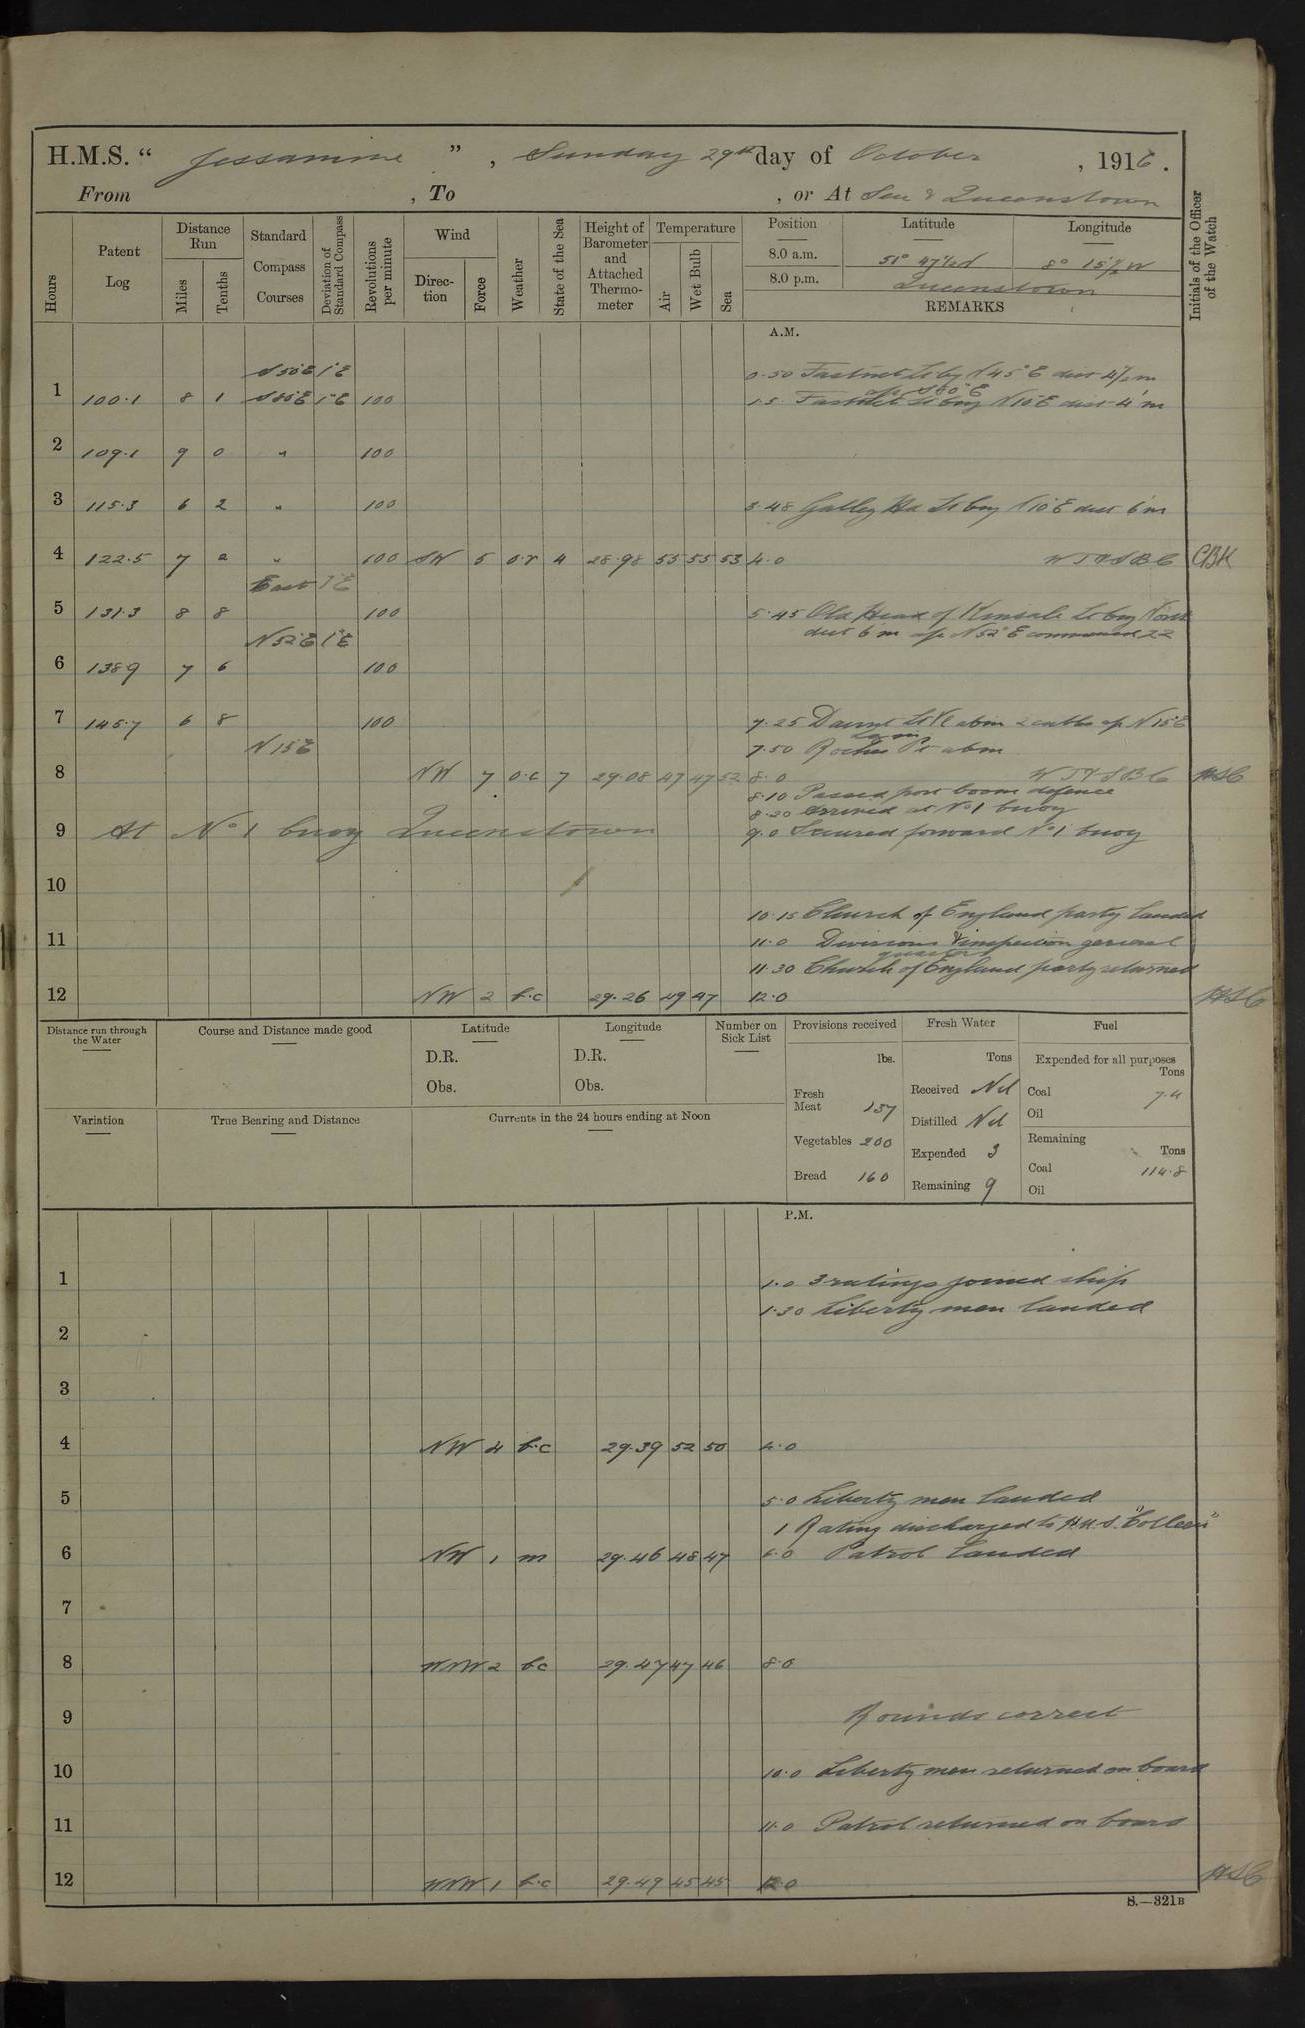 H.M.S. “ Jessamine ” , Sunday 29th day of October , 1916 .
From , To , or At Sea & Queenstown
Hours
Patent Log
Distance Run
Miles
Tenths
Standard Compass Courses
Deviation of Standard Compass
Revolutions per minute
Wind
Direction
Force
Weather
State of the Sea
Height of Barometer and Attached Thermometer
Temperature
Air
Wet Bulb
Sea
Position Latitude Longitude
8.0 a.m. 51° 47½N 8° 15½W
8.0 p.m. Queenstown
REMARKS
Initials of the Officer of the Watch
A.M.
S50°E 1°E 0.50 Fastnet Lt brg N45°E dist 4½m
a/c S80°E
1 100.1 8 1 1°E 100 1.5 Fastnet Lt brg N10°E dist 4'm
2 109.1 9 0 " 100
3 115.3 6 2 " 100 3.48 Galley Hd Lt brg N10°E dist 6'm
4 122.5 7 2 " 100 SW 5 o.r 4 28.98 55 55 53 4.0 WT&SBC CBK
East 1°E
5 131.3 8 8 100 5.45 Old Head of Kinsale Lt brg North
N52°E 1°E dist 6'm a/c N52°E commenced ZZ
6 138.9 7 6 100
7 145.7 6 8 100 7.25 Daunt Lt Vl abm 2 cables a/c N15°E
N15°E 7.50 Roches Pt abm
8 NW 7 o.c 7 29.08 47 47 52 8.0 WT&SBC HSC
8.10 Passed port boom defence
8.20 Arrived at No 1 buoy
9 At No 1 buoy Queenstown 9.0 Secured forward No 1 buoy
10
10.15 Church of England party landed
11 11.0 Divisions & inspection general
quarters
11.30 Church of England party returned
12 NW 2 b.c 29.26 49 47 12.0 HSC
Distance run through the Water
Course and Distance made good
Latitude
D.R.
Obs.
Longitude
D.R.
Obs.
Number on Sick List
Variation
True Bearing and Distance
Currents in the 24 hours ending at Noon
Provisions received
lbs.
Fresh Meat 157
Vegetables 200
Bread 160
Fresh Water
Tons
Received Nil
Distilled Nil
Expended 3
Remaining 9
Fuel
Expended for all purposes
Tons
Coal 7.4
Oil
Remaining
Tons
Coal 114.8
Oil
P.M.
1 1.0 3 ratings joined ship
1.30 Liberty men landed
2
3
4 NW 4 b.c 29.39 52 50 4.0
5 5.0 Liberty men landed
1 Rating discharged to H.M.S. "Colleen"
6 NW 1 m 29.46 48 47 6.0 Patrol landed
7
8 WNW 2 bc 29.47 47 46 8.0
9 Rounds correct
10 10.0 Liberty men returned on board
11 11.0 Patrol returned on board
12 WNW 1 b.c 29.49 45 45 12.0 HSC
S.—321B